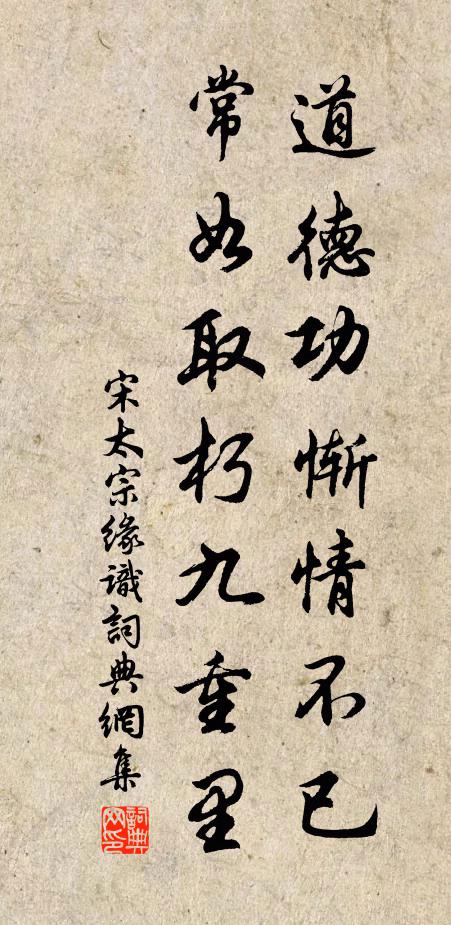 道德功慚情不已
常如取朽九重里
宋太宗緣識詞典網集
詞典网印